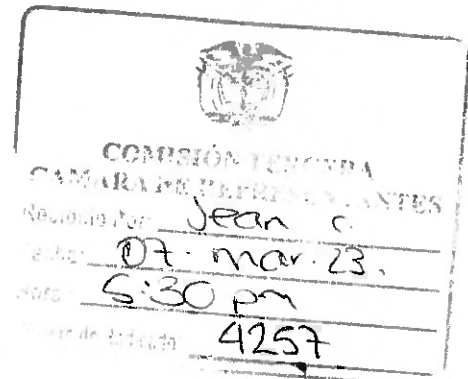 COMISIÓN TERCERA
CAMARA DE REPRESENTANTES
Recibido Por: Jean C.
Fecha: 07. mar. 23.
Hora: 5:30 pm
4257